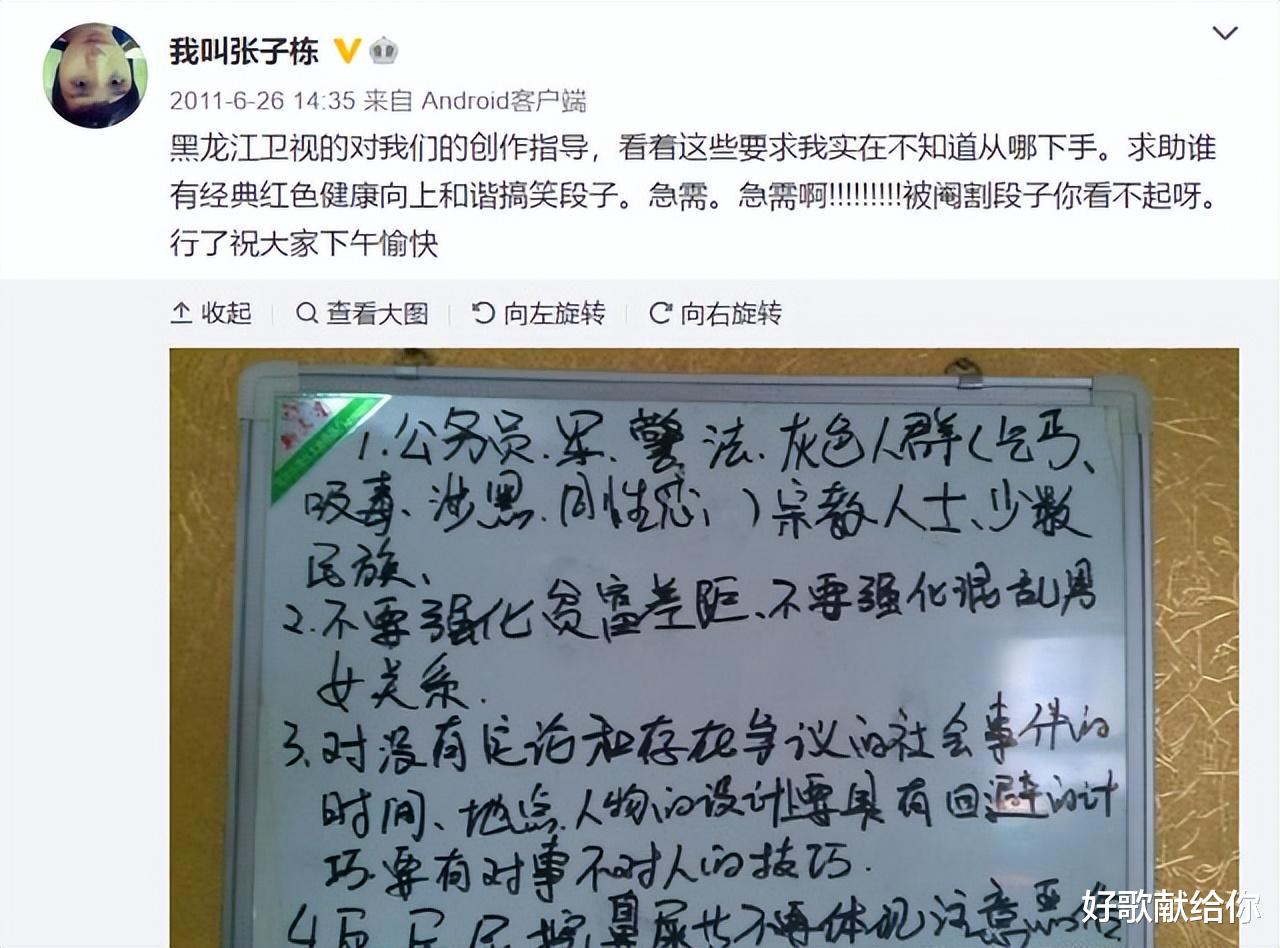 我叫张子栋
2011-6-26 14:35 来自 Android客户端
黑龙江卫视的对我们的创作指导，看着这些要求我实在不知道从哪下手。求助谁
有经典红色健康向上和谐搞笑段子。急需。急需啊!!!!!!!!!被阉割段子你看不起呀。
行了祝大家下午愉快
收起 查看大图 向左旋转 向右旋转
1.公务员.军.警.法.灰色人群(乞丐、
吸毒、涉黑.同性恋；)宗教人士、少数
民族、
2.不要强化贫富差距、不要强化混乱男
女关系.
3、对没有定论和存在争议的社会事件的
时间、地点.人物的设计上要具有回避的计
巧.要有对事不对人的技巧.
4 不要体现 注意恶俗
好歌献给你